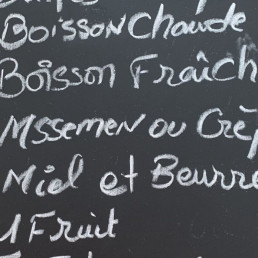 Boisson Chaude
Boisson Fraîch
Mssemen ou Crêp
Miel et Beurre
1 Fruit